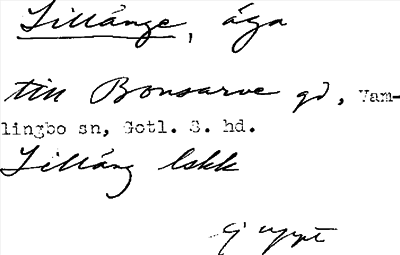 Lillänge, äga
till Bonsarve gd, Vam-
lingbo sn, Gotl. S. hd.
Lilläng lskk
ej uppt